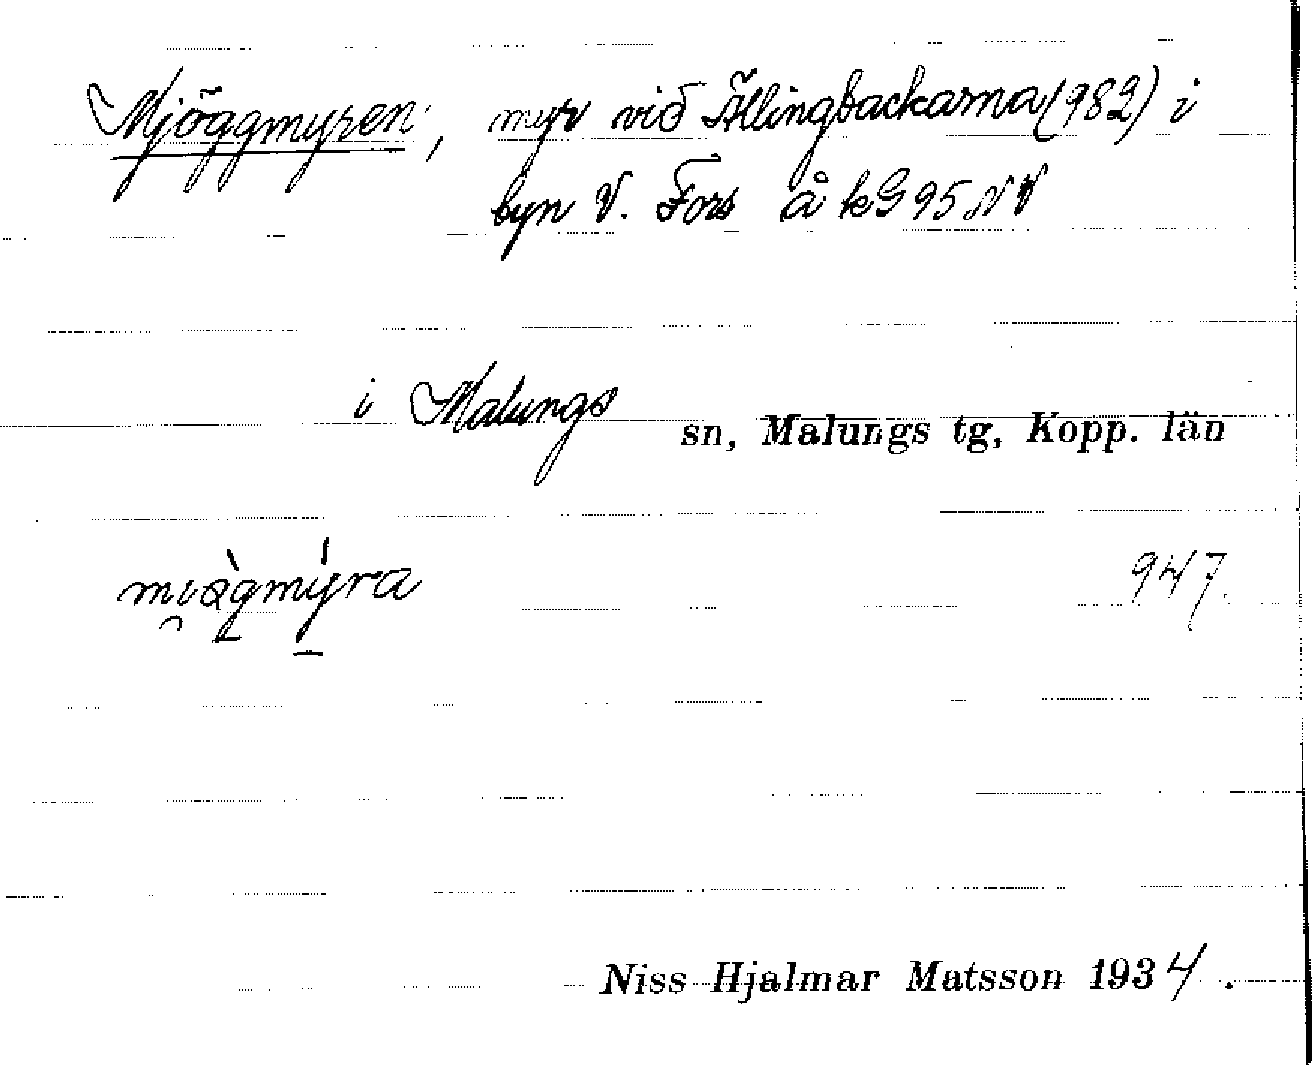 Mjöggmyren, myr vid Ällingbackarna (982) i
byn V. Fors å kG 95 NV
i Malungs sn, Malungs tg, Kopp. län
947.
Niss Hjalmar Matsson 1934.